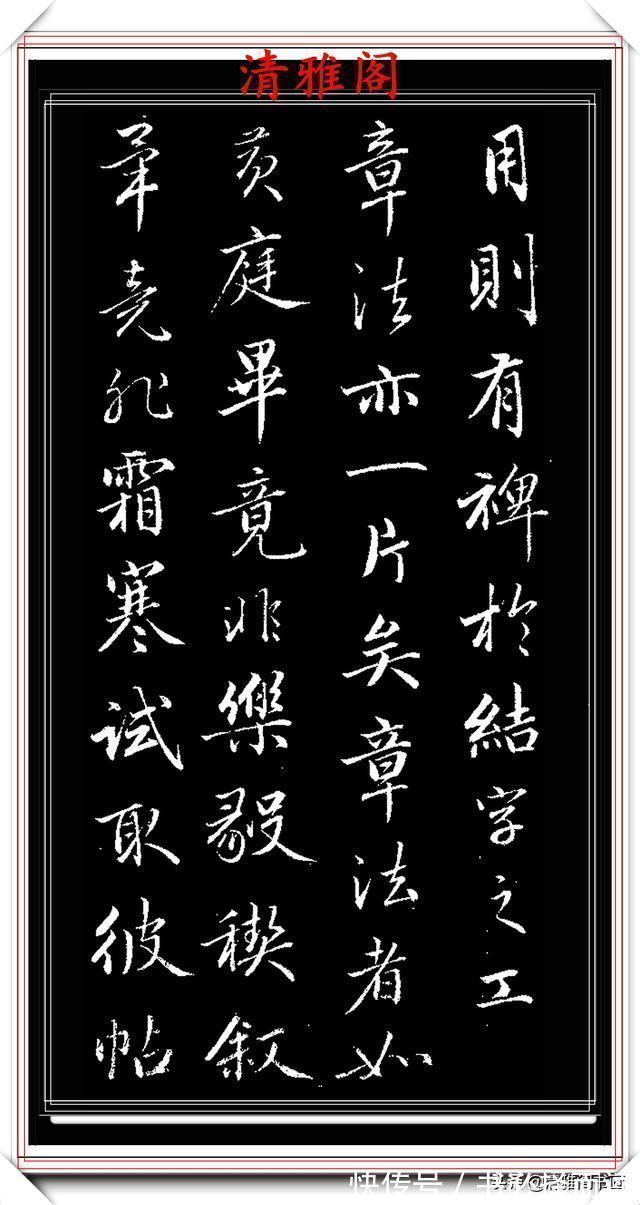 清雅阁
用則有裨於結字之工
章法亦一片矣章法者如
黄庭畢竟非樂毅稧叙
筆意非霜寒試取彼帖
快传号/